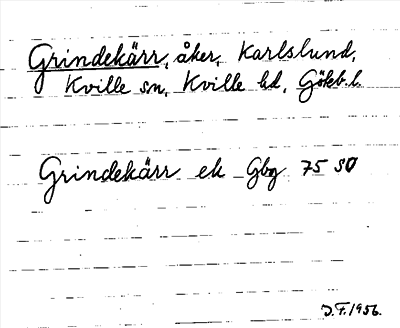 Grindekärr, åker, Karlslund,
Kville sn, Kville hd, Gökb. l.
Grindekärr ek Gbg 75 SO
J.F. 1956.